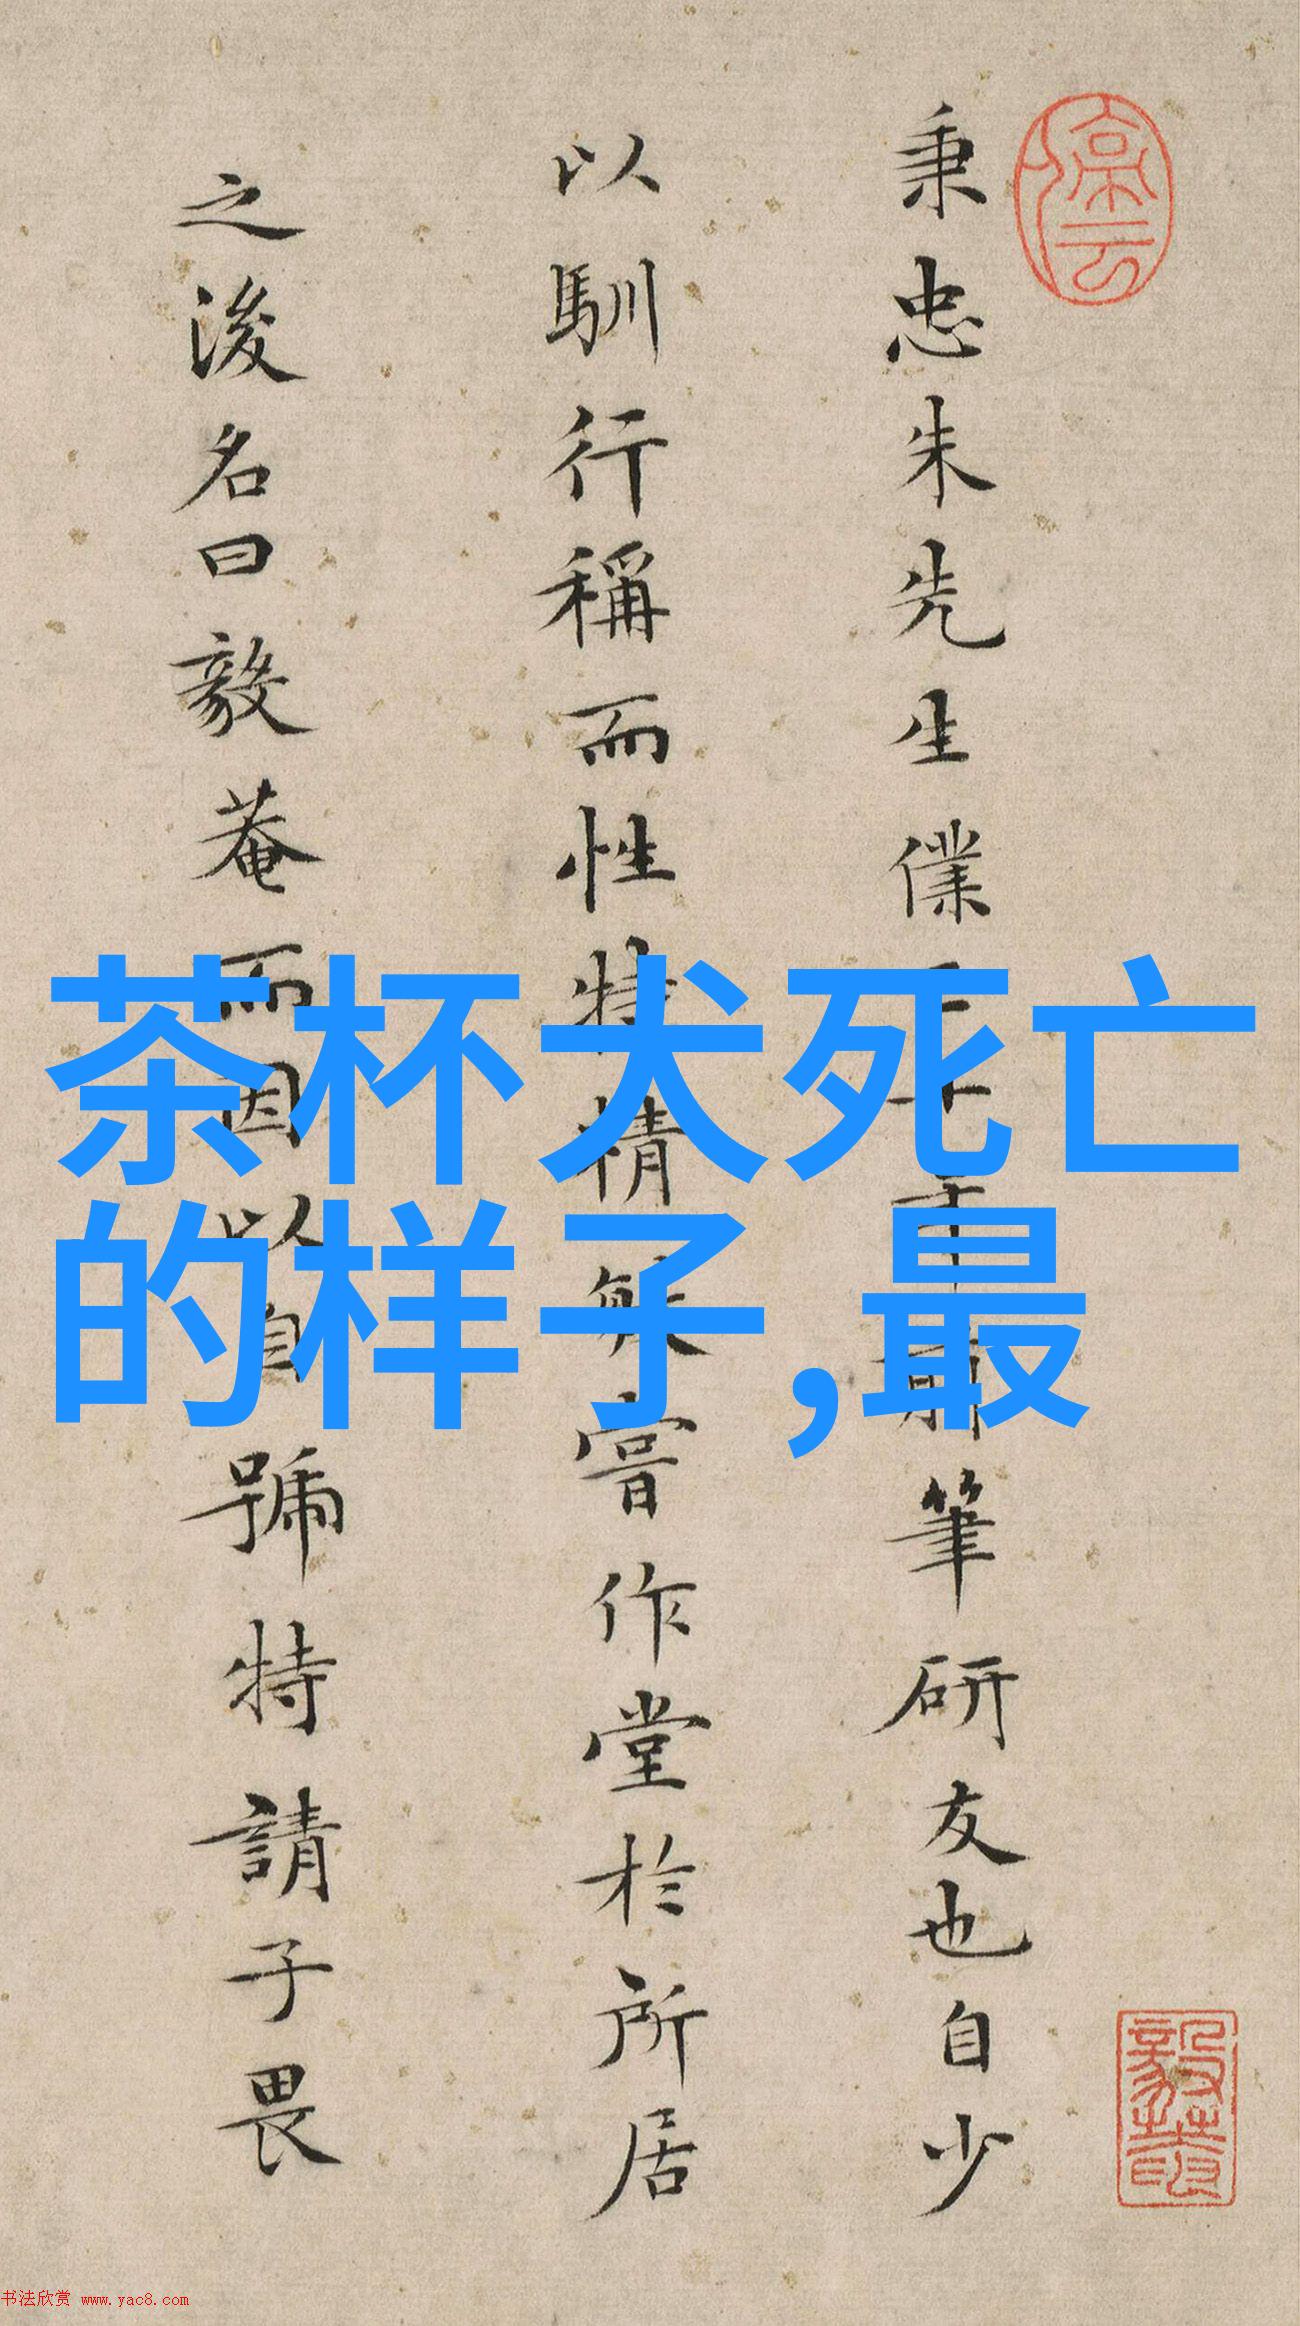 秉忠朱先生僕 筆研友也自少
以馴行稱而性特精 甞作堂於所居
之後名曰毅菴而因以自號特請予畏
茶杯犬死亡
的样子,最
书法欣赏 www.yac8.com